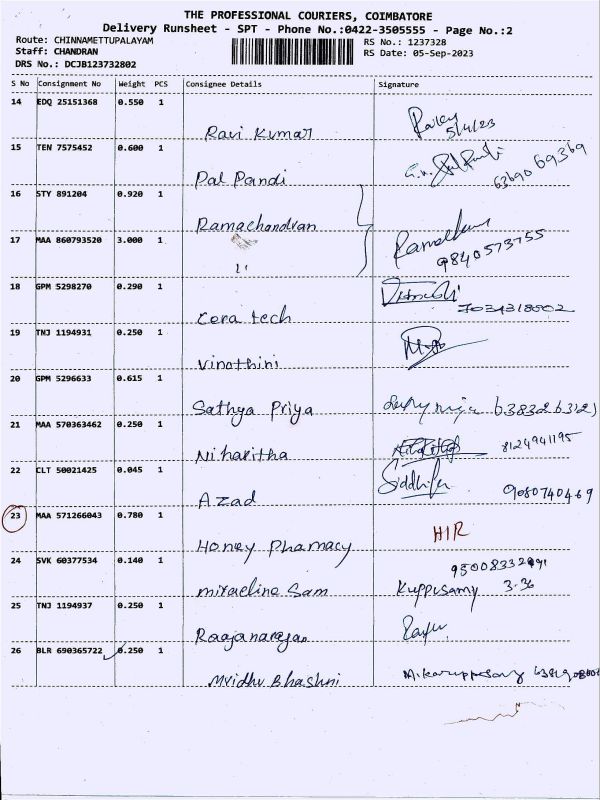 THE PROFESSIONAL COURIERS, COIMBATORE
Delivery Runsheet - SPT - Phone No.:0422-3505555 - Page No.:2
Route: CHINNAMETTUPALAYAM RS No.: 1237328
Staff: CHANDRAN RS Date: 05-Sep-2023
DRS No.: DCJB123732802
S No Consignment No Weight PCS Consignee Details Signature
14 EDQ 25151368 0.550 1
Ravi Kumar 5/4/23
15 TEN 7575452 0.600 1
Pal Pandi 63690 69369
16 STY 891204 0.920 1
Ramachandran
17 MAA 860793520 3.000 1
9840573755
18 GPM 5298270 0.290 1
Cera tech
19 TNJ 1194931 0.250 1
Vinothini
20 GPM 5296633 0.615 1
Sathya Priya
21 MAA 570363462 0.250 1
Niharitha 8124941195
22 CLT 50021425 0.045 1
Azad 9080740469
23 MAA 571266043 0.780 1
Honey Pharmacy
24 SVK 60377534 0.140 1
Miracline Sam Kuppusamy 3-36
25 TNJ 1194937 0.250 1
Raajanarayan
26 BLR 690365722 0.250 1
Mridhu Bhashni